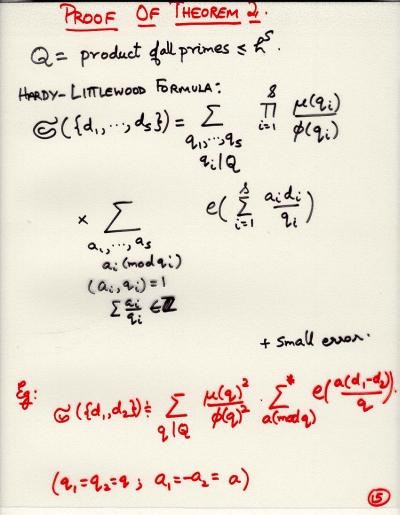 PROOF OF THEOREM 2.
Q = product of all primes ≤ h^5.
HARDY-LITTLEWOOD FORMULA:
𝔖({d_1, ..., d_s}) = ∑_{q_1, ..., q_s, q_i | Q} ∏_{i=1}^{s} μ(q_i)/ϕ(q_i)
× ∑_{a_1, ..., a_s, a_i (mod q_i), (a_i, q_i) = 1, ∑ a_i/q_i ∈ ℤ} e(∑_{i=1}^{s} a_i d_i/q_i)
+ small error.
Eg: 𝔖({d_1, d_2}) ≑ ∑_{q | Q} μ(q)^2/ϕ(q)^2 · ∑*_{a (mod q)} e(a(d_1-d_2)/q)
(q_1 = q_2 = q ; a_1 = -a_2 = a)
15